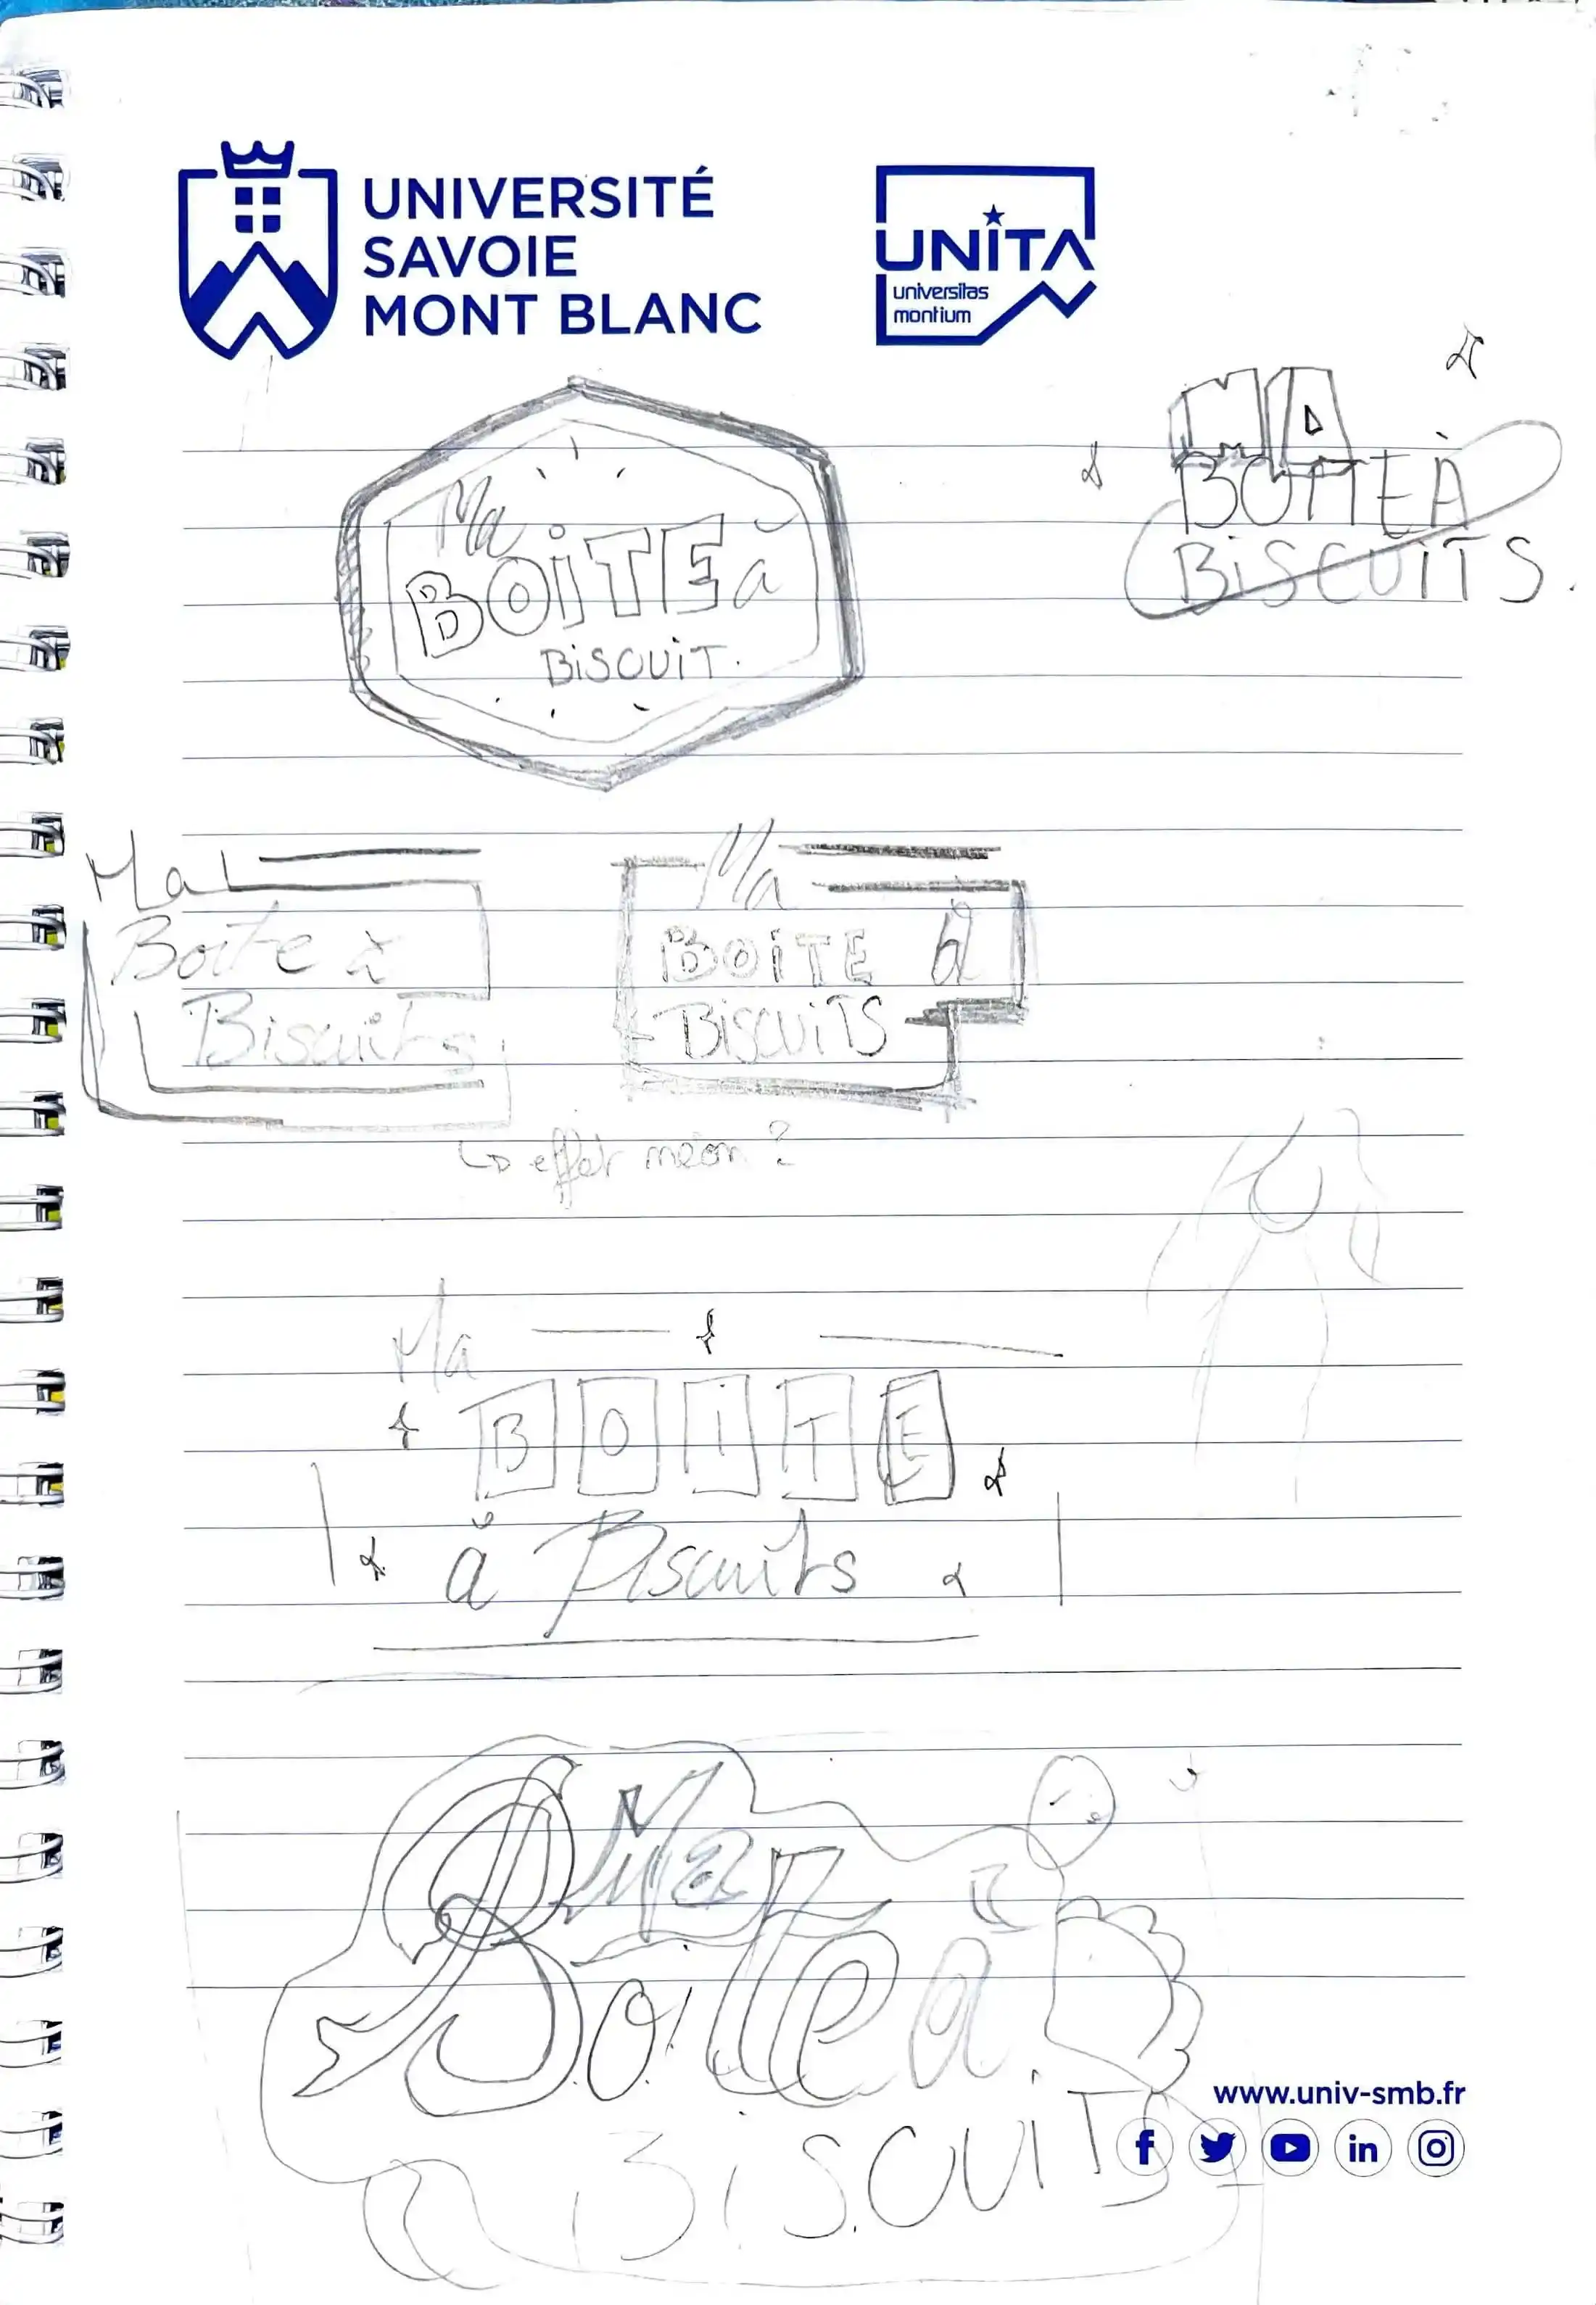 UNIVERSITÉ
SAVOIE
MONT BLANC
UNITA
universitas
montium
MA
BOITE À
BISCUITS.
Ma
BOiTE à
BiSCUiT.
Ma
Boite à
Biscuits
Ma
BOiTE à
BiSCUiTS
↳ effet néon ?
Ma
BOiTE
à Biscuits
Ma
Boite à
BiSCUiTS
www.univ-smb.fr